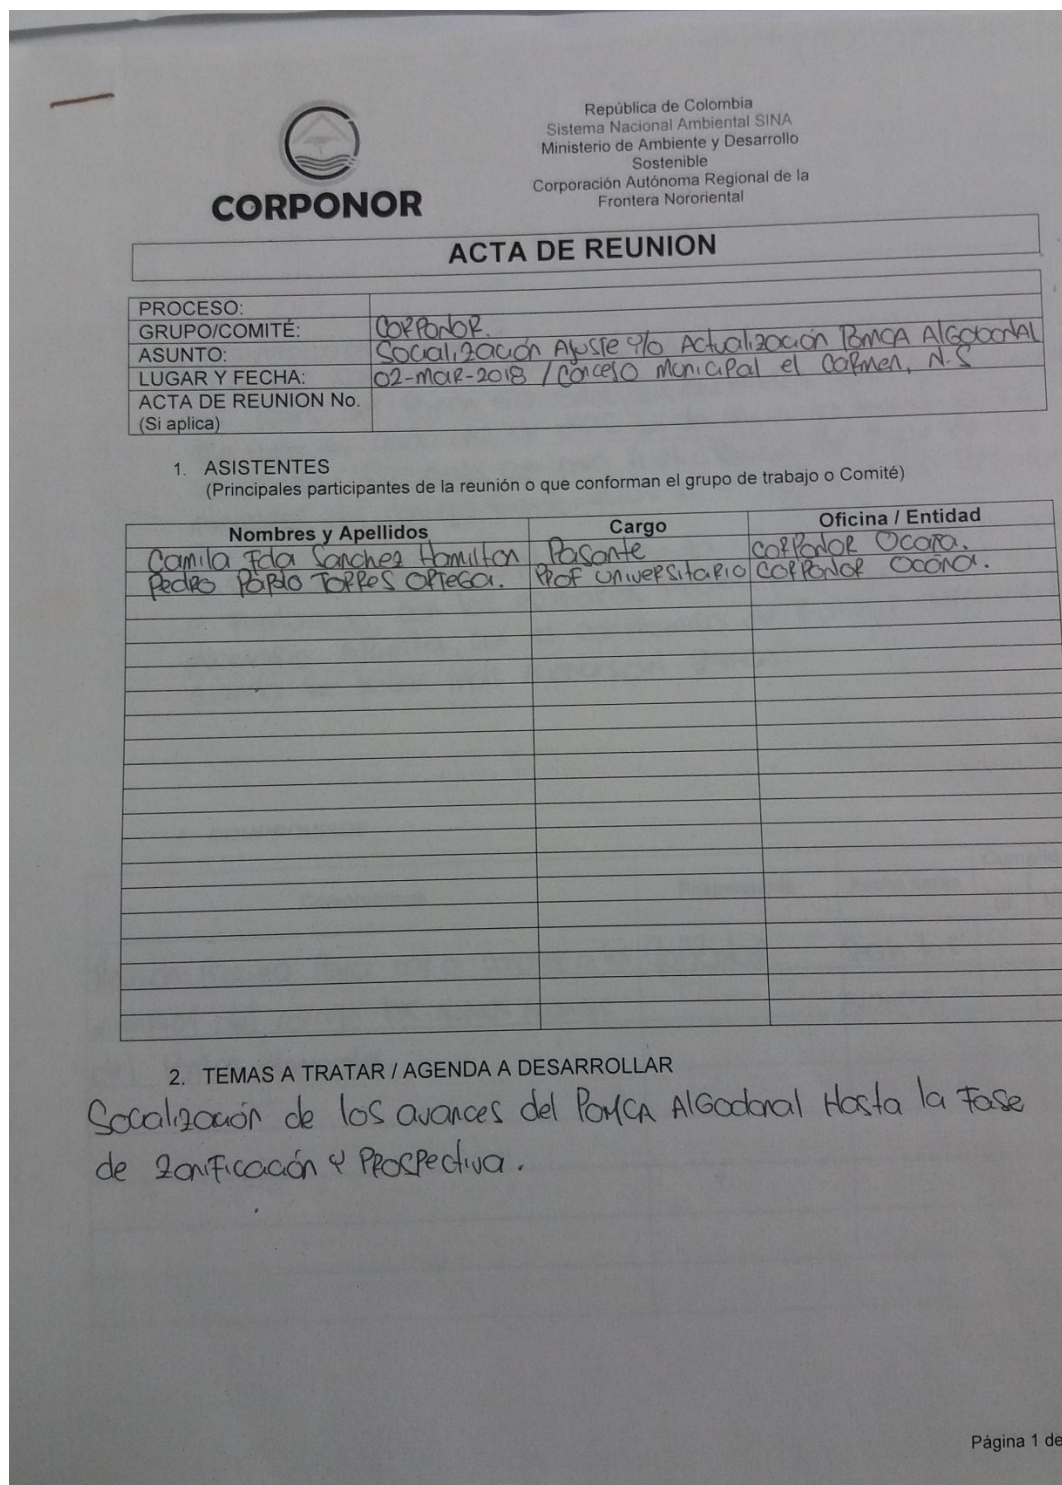 República de Colombia
Sistema Nacional Ambiental SINA
Ministerio de Ambiente y Desarrollo
Sostenible
Corporación Autónoma Regional de la
Frontera Nororiental
CORPONOR
ACTA DE REUNION
PROCESO:
GRUPO/COMITÉ: CORPONOR.
ASUNTO: Socialización Ajuste y/o Actualización POMCA AlGodonal
LUGAR Y FECHA: 02-MAR-2018 / Concejo Municipal el Carmen, N.S
ACTA DE REUNION No.
(Si aplica)
1. ASISTENTES
(Principales participantes de la reunión o que conforman el grupo de trabajo o Comité)
Nombres y Apellidos Cargo Oficina / Entidad
Camila Ida Sanchez Hamilton Pasante CORPONOR Ocaña.
Pedro Pablo Torres Ortega. Prof Universitario CORPONOR Ocaña.
2. TEMAS A TRATAR / AGENDA A DESARROLLAR
Socialización de los avances del POMCA AlGodonal Hasta la Fase
de Zonificación y Prospectiva.
Página 1 de